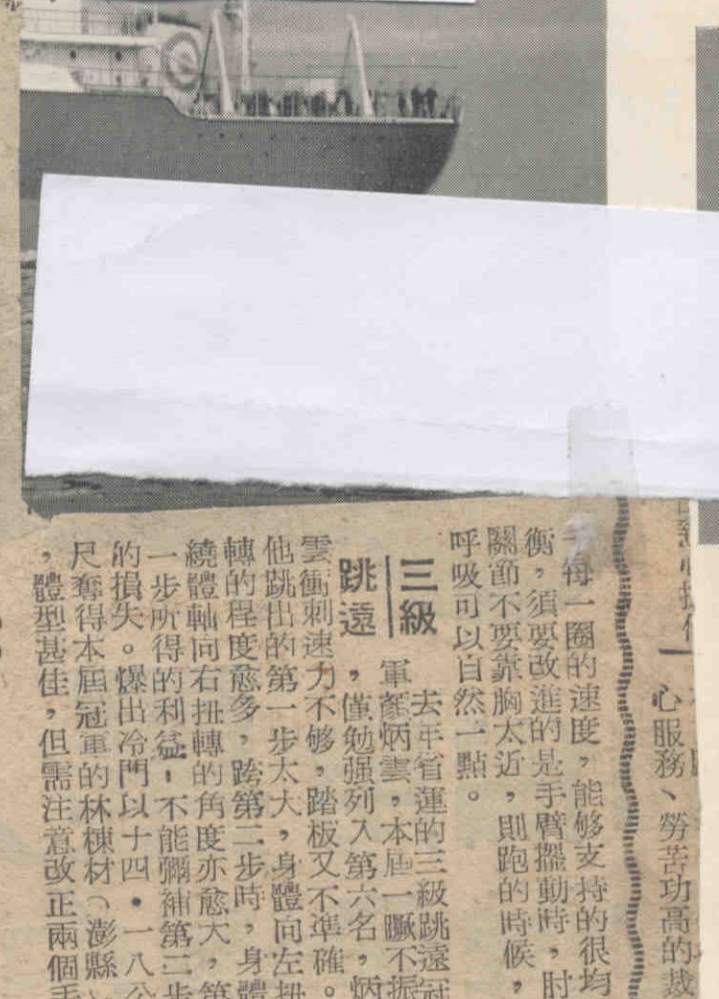 心服務、勞苦功高的裁
每一圈的速度，能够支持的很均
衡，須要改進的是手臂擺動時，肘
關節不要靠胸太近，則跑的時候，
呼吸可以自然一點。
三級
跳遠
去年省運的三級跳遠冠
軍顏炳雲，本屆一蹶不振
，僅勉强列入第六名，炳
雲衝刺速力不够，踏板又不準確。
他跳出的第一步太大，身體向左扭
轉的程度愈多，跨第二步時，身體
繞體軸向右扭轉的角度亦愈大，第
一步所得的利益，不能彌補第二步
的損失。爆出冷門以十四・一八公
尺奪得本屆冠軍的林棟材（澎縣）
，體型甚佳，但需注意改正兩個手